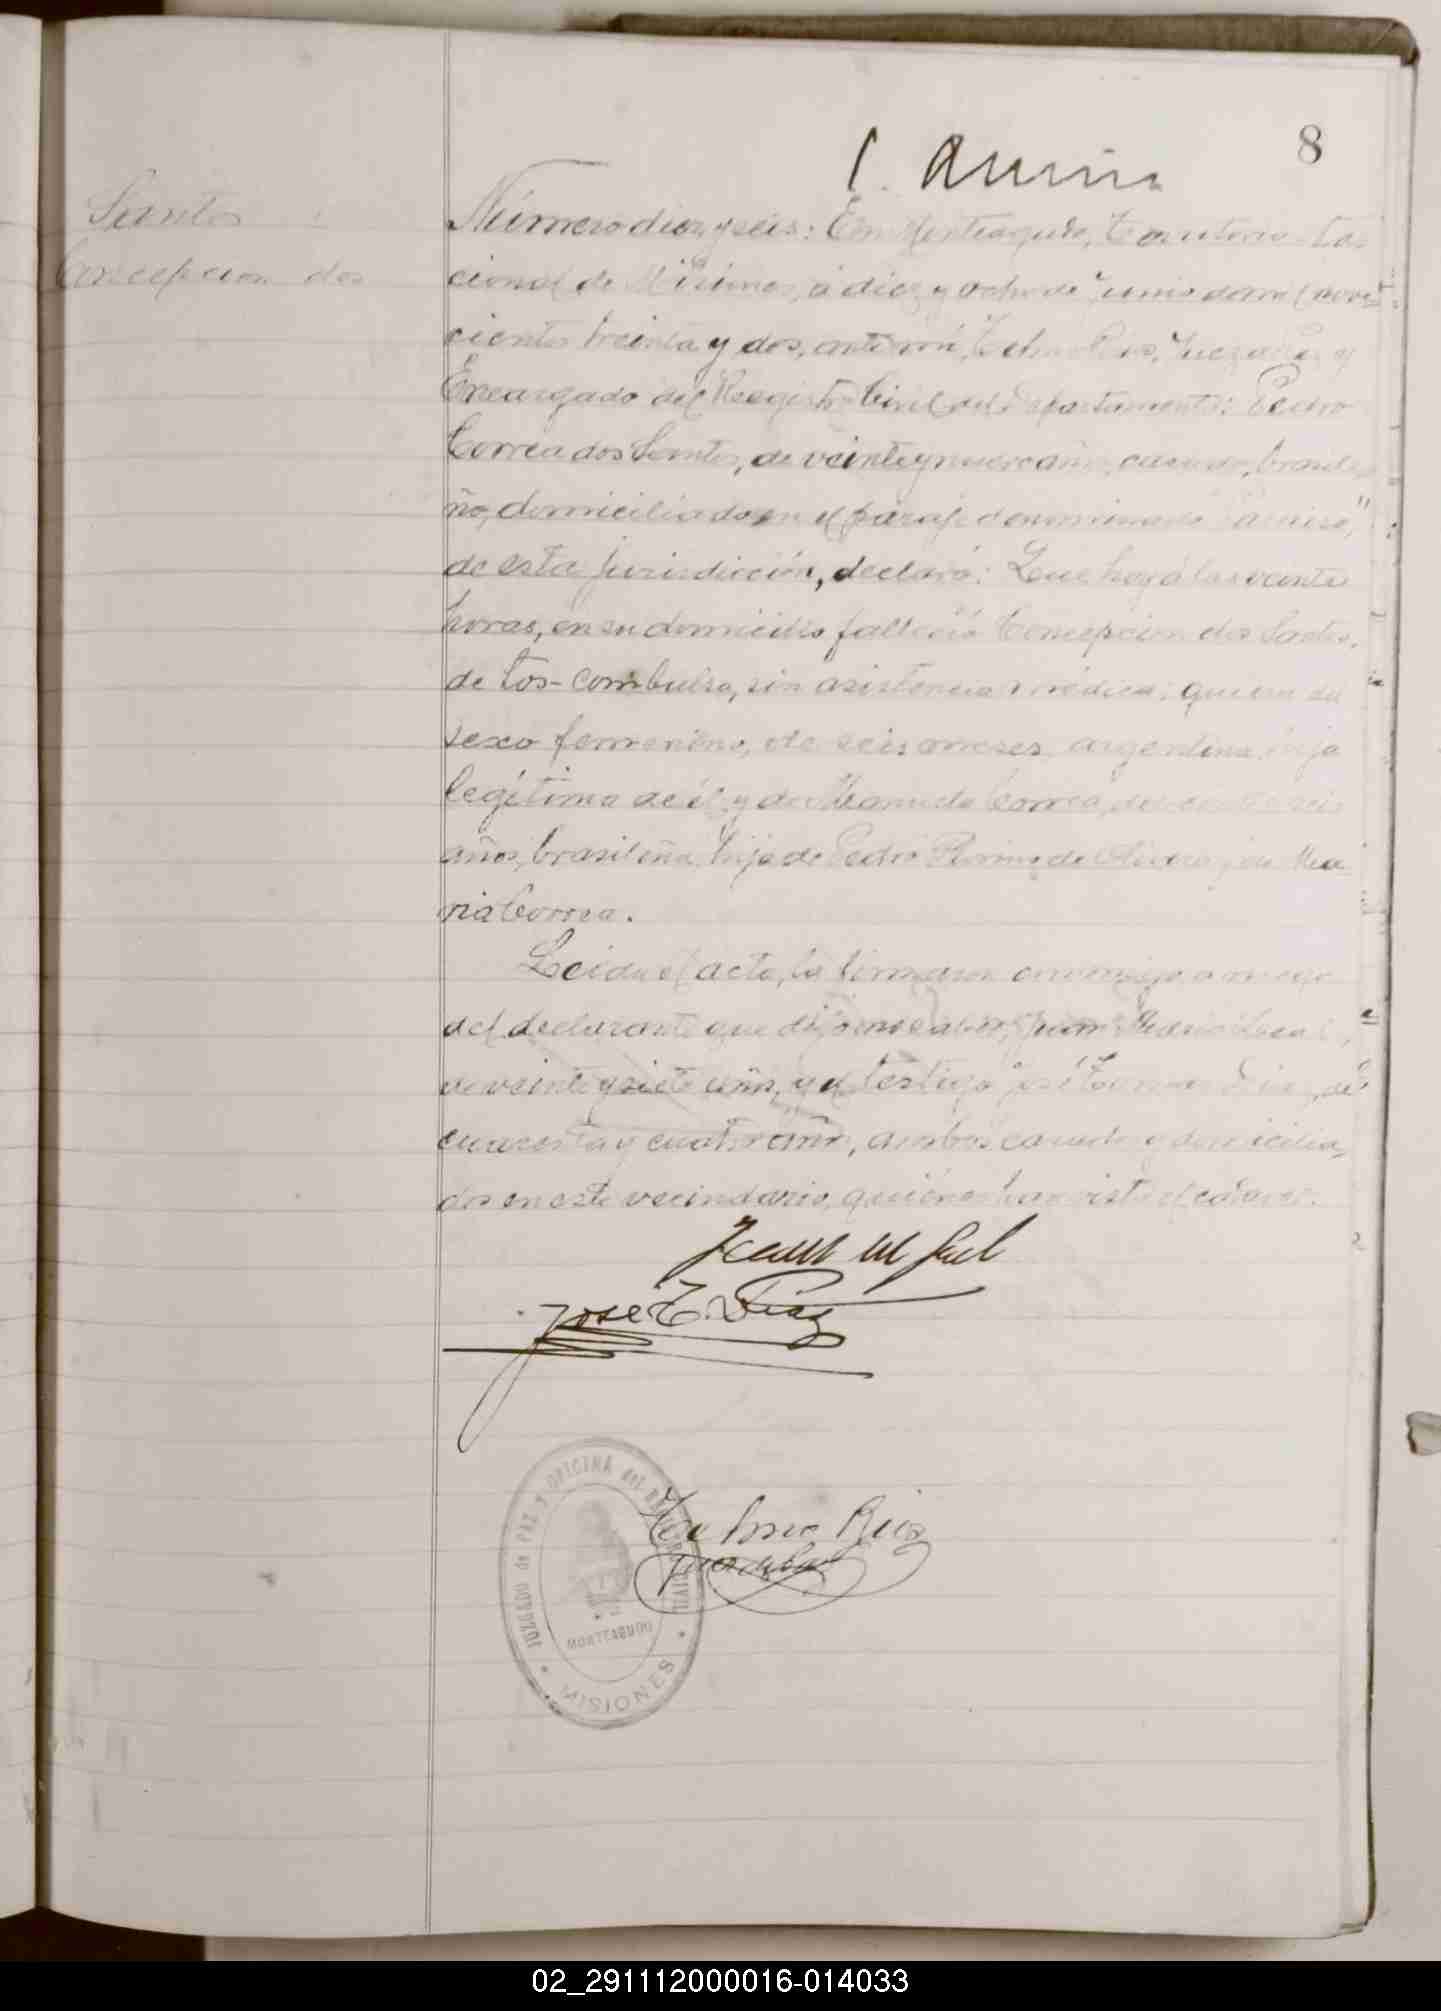 8
Santos
Concepcion dos
Número diez y seis: En Monteagudo, Territorio Na-
cional de Misiones, á diez y ocho de Junio de mil nove-
cientos treinta y dos, ante mí, Ruiz, Juez de Paz y
Encargado del Registro Civil del Departamento: Pedro
Correa dos Santos, de veinte y nueve años, casado, brasile-
ño, domiciliado en el paraje denominado
de esta jurisdicción, declaró: Que hoy á las veinte
horas, en su domicilio falleció Concepcion dos Santos,
de tos-combulsa, sin asistencia médica; que era del
sexo femenino, de seis meses, argentina, hija
legítima de él y de Manuela Correa, de seis
años, brasileña, hija de Pedro de Olivera y de Ma-
ria Correa.
Leida el acta, la firmaron conmigo, a ruego
del declarante que dijo no saber, Juan
de veinte y siete años, y el testigo José Diaz, de
cuarenta y cuatro años, ambos casados y domicilia-
dos en este vecindario, quiénes han visto el cadaver.
Juan M
José T. Diaz
Ruiz
Juez de Paz
JUZGADO de PAZ y OFICINA del REGISTRO CIVIL
MONTEAGUDO
MISIONES
02_291112000016-014033